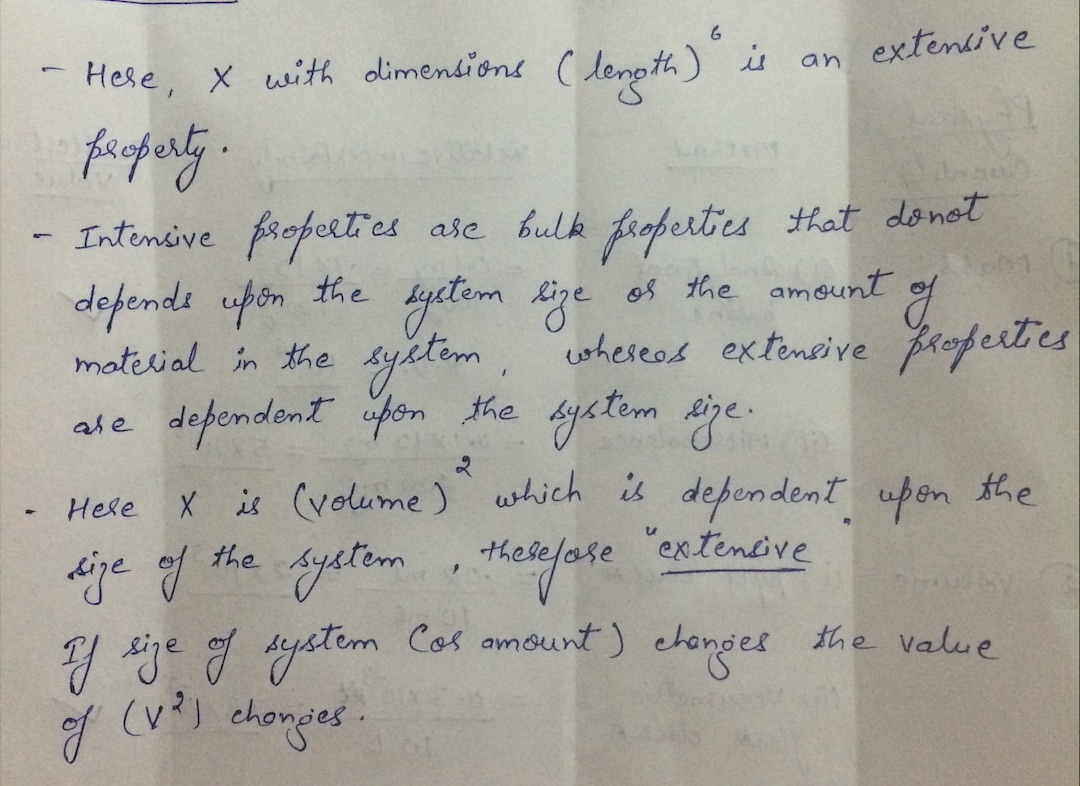 - Here, X with dimensions (length)⁶ is an extensive
property.
- Intensive properties are bulk properties that donot
depends upon the system size or the amount of
material in the system, whereas extensive properties
are dependent upon the system size.
- Here X is (volume)² which is dependent upon the
size of the system, therefore "extensive"
If size of system (or amount) changes the value
of (V²) changes.